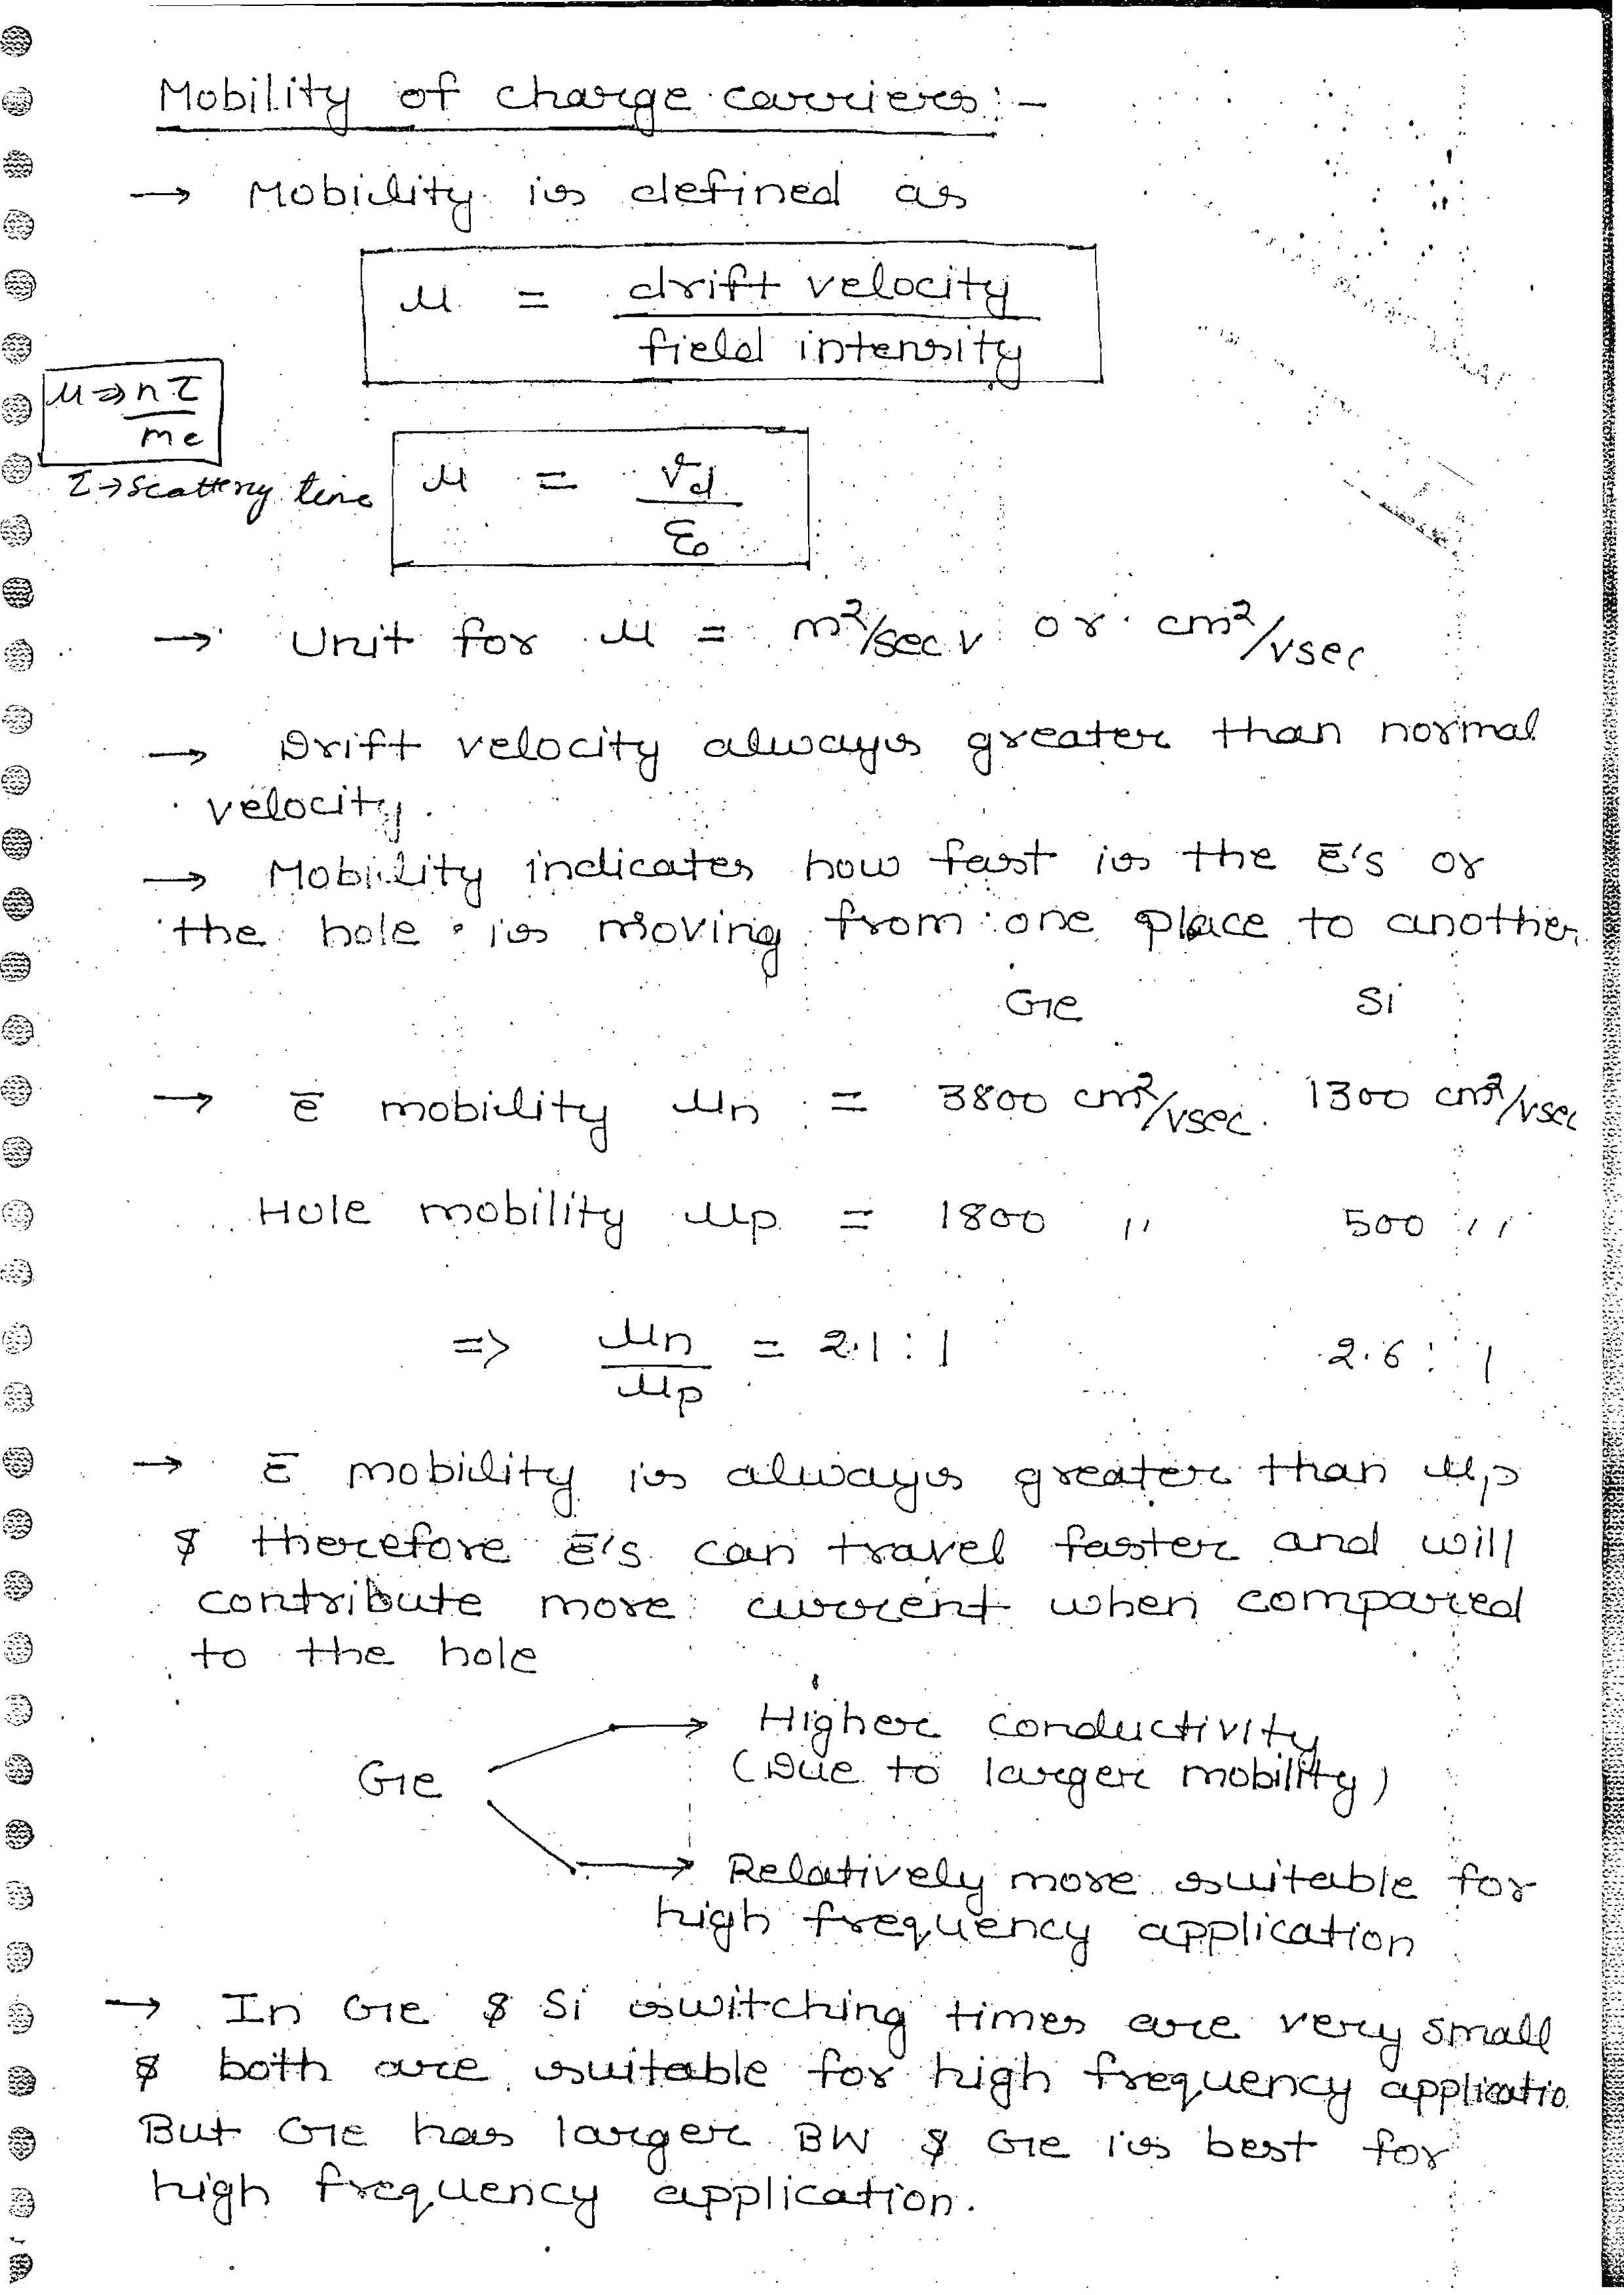 Mobility of charge carriers:-
→ Mobility is defined as
μ = drift velocity / field intensity
μ ⇒ nτ / me
τ → Scattery time
μ = vd / ε0
→ Unit for μ = m²/sec v or cm²/vsec
→ Drift velocity always greater than normal
velocity.
→ Mobility indicates how fast is the ē's or
the hole is moving from one place to another
Ge Si
→ ē mobility μn = 3800 cm²/vsec. 1300 cm²/vsec
Hole mobility μp = 1800 ,, 500 ,,
=> μn / μp = 2.1 : 1 2.6 : 1
→ ē mobility is always greater than μp
& therefore ē's can travel faster and will
contribute more current when compared
to the hole
Ge → Higher conductivity
(Due to larger mobility)
→ Relatively more suitable for
high frequency application
→ In Ge & Si switching times are very small
& both are suitable for high frequency applicatio
But Ge has larger BW & Ge is best for
high frequency application.